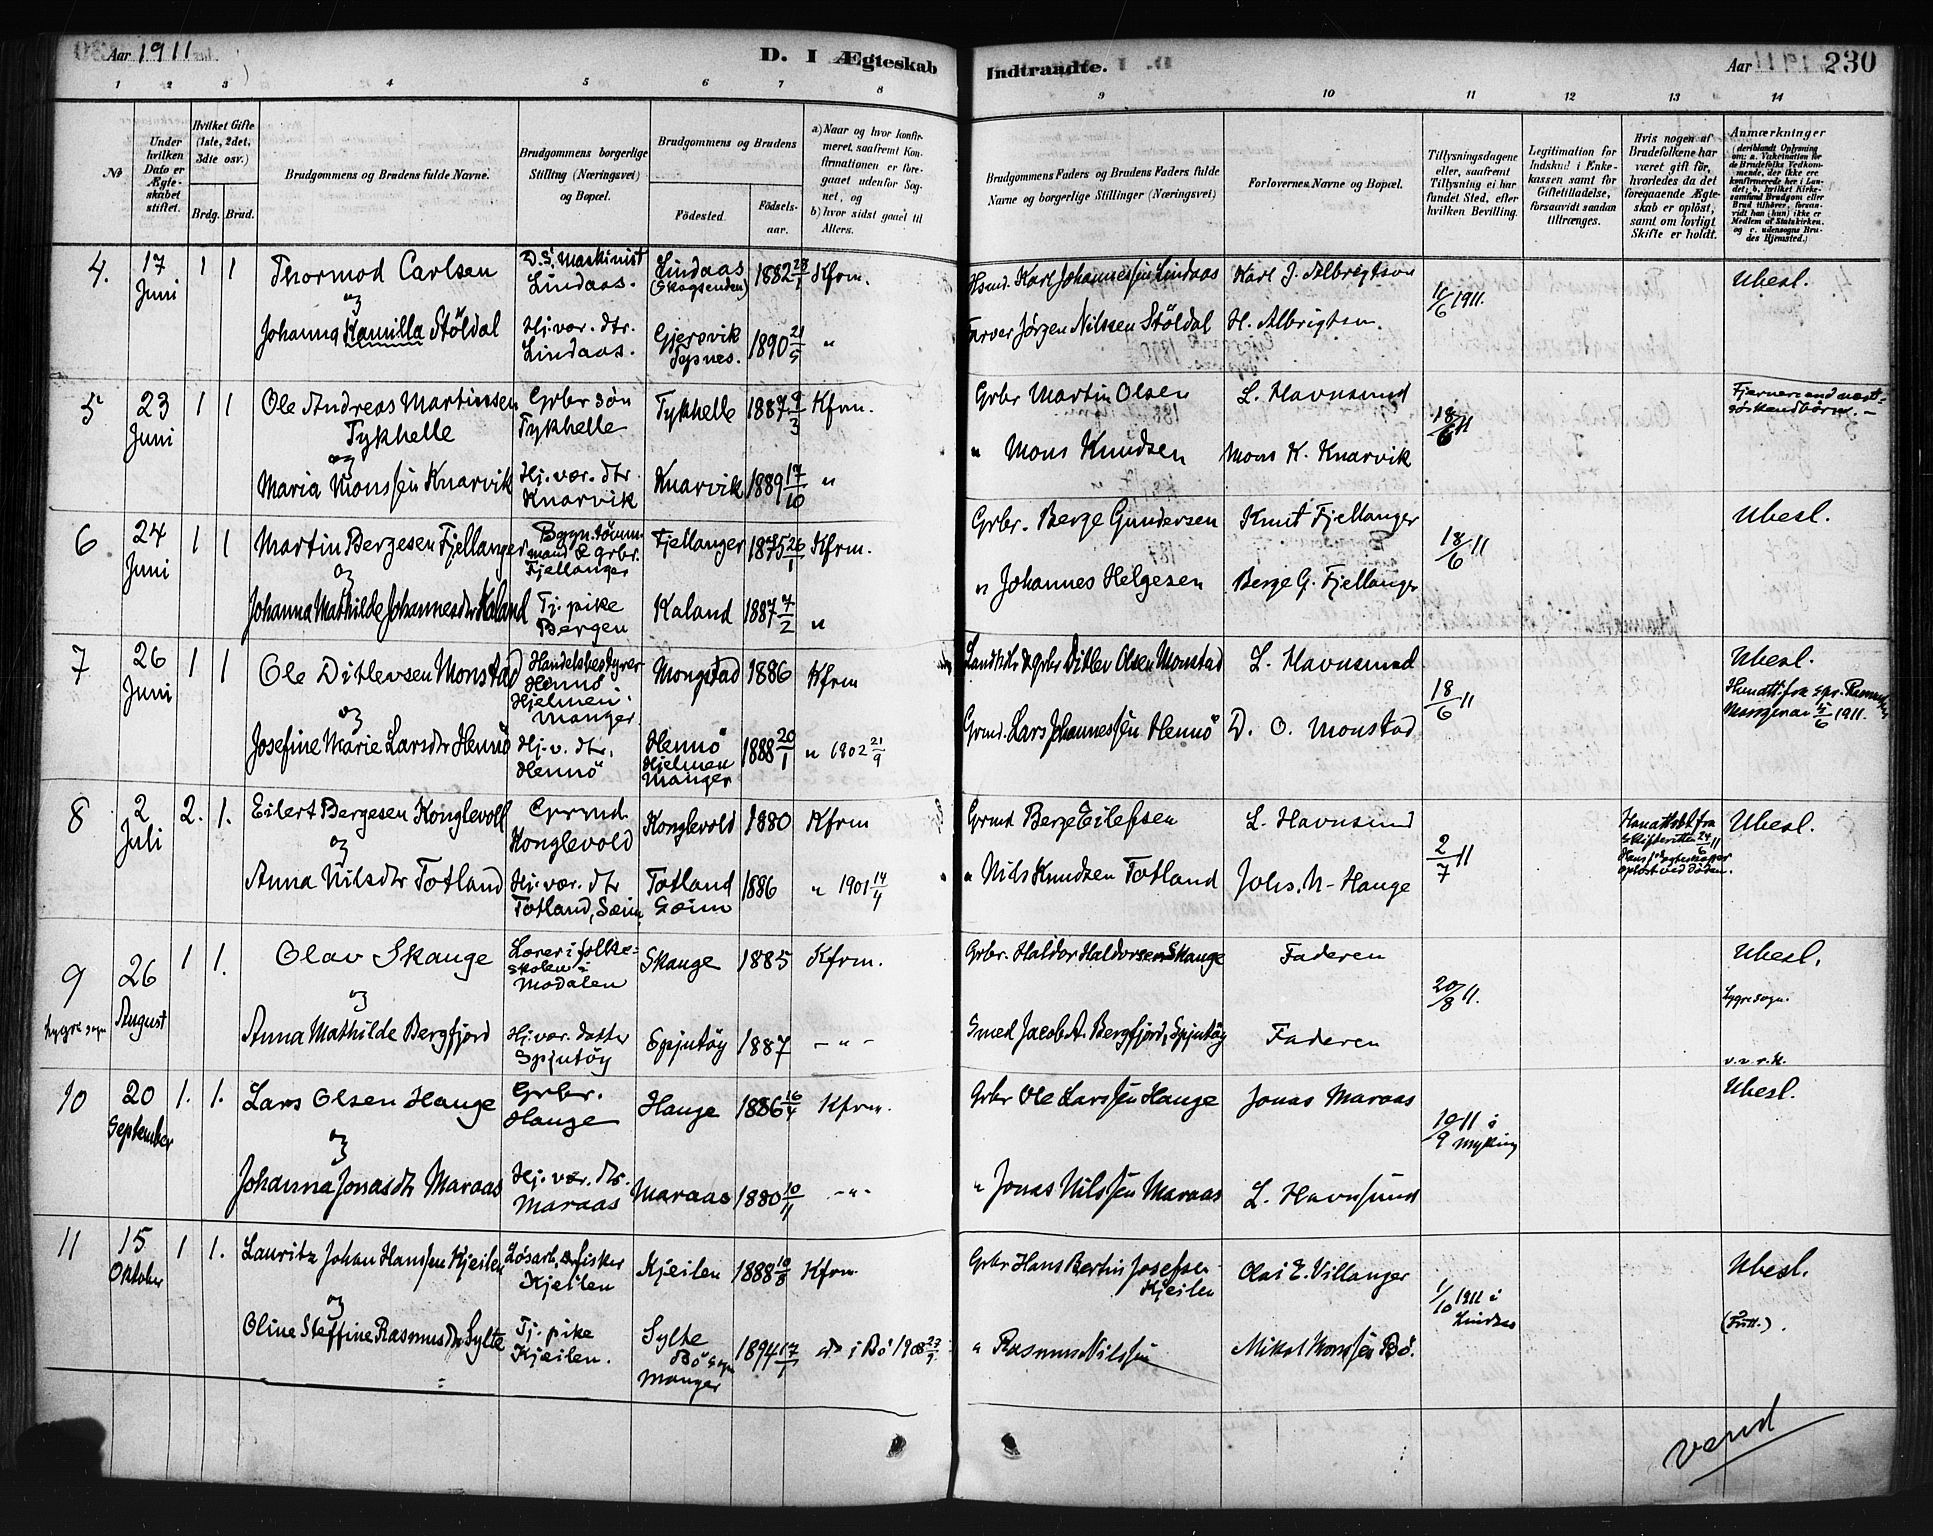 Aar 1911
D. I Ægteskab
Indtraadte.
Aar 1911
230
1 2 3 4 5 6 7 8
9 10 11 12 13 14
No
Under hvilken Dato er Ægteskabet stiftet.
Hvilket Gifte (1ste, 2det, 3dte osv.)
Brdg. Brud.
Brudgommens og Brudens fulde Navne.
Brudgommens borgerlige Stilling (Næringsvei) og Bopæl.
Brudgommens og Brudens
Fødested.
Fødselsaar.
a) Naar og hvor konfirmeret, saafremt Konfirmationen er foregaaet udenfor Sognet, og
b) hvor sidst gaaet til Alters.
Brudgommens Faders og Brudens Faders fulde Navne og borgerlige Stillinger (Næringsvei)
Forlovernes Navne og Bopæl.
Tillysningsdagene eller, saafremt Tillysning ei har fundet Sted, efter hvilken Bevilling.
Legitimation for Indskud i Enkekassen samt for Giftetilladelse, forsaavidt saadan tiltrænges.
Hvis nogen af Brudefolkene har været gift før, hvorledes da det foregaaende Ægteskab er opløst, samt om lovligt Skifte er holdt.
Anmærkninger
(deriblandt Oplysning om: a. Vakcination for de Brudefolks Vedkommende, der ikke ere konfirmerede her i Landet; b. hvilket Kirkesamfund Brudgom eller Brud tilhører, forsaavidt han (hun) ikke er Medlem af Statskirken, og c. udensogns Brudes Hjemsted.)
4. 17 Juni 1 1
Thormod Carlsen
D.S. Maskinist Lindaas.
Lindaas (Skogsenden) 1882 28/1 Kfrm.
Hsmd. Karl Johannessen Lindaas
Karl J. Albrigtson
16/6 1911.
Ubesl.
og
Johanna Kamilla Stöldal
Hj. vær. dtr. Lindaas.
Gjersvik Sypnes. 1890 21/5 "
Farver Jörgen Nilssen Stöldal
H. Albrigtsen.
5 23 Juni 1 1
Ole Andreas Martinsen Tykhelle
Grbr sön Tykhelle
Tykhelle 1887 9/3 Kfrm.
Grbr Martin Olsen
L. Havnsund
18/6 11
Fjernere end næstsöskendbörn. -
og
Maria Monssen Knarvik
Hj. vær. dtr Knarvik
Knarvik 1889 17/10 "
" Mons Knudsen
Mons K. Knarvik
6 24 Juni 1 1
Martin Bergesen Fjellanger
Bygn. tömmermand & grbr. Fjellanger
Fjellanger 1875 26/1 Kfrm.
Grbr. Berge Gundersen
Knut Fjellanger
18/6 11
Ubesl.
og
Johanna Mathilde Johannesdtr Kaland
Tj. pike Bergen
Kaland 1887 7/2 "
" Johannes Helgesen
Berge G. Fjellanger
7 26 Juni 1 1
Ole Ditlevsen Monstad
Handelsbestyrer Hennö Hjelmen Manger
Mongstad 1886 Kfrm
Landhdlr & grbr Ditlev Olsen Monstad
L. Havnsund
18/6 11
Ubesl.
og
Josefine Marie Larsdtr Hennö
Hj. v. dtr. Hennö
Hennö Hjelmen Manger 1888 20/1 " 1902 21/9
Grmd. Lars Johannessen Hennö
D. O. Monstad
8 2 Juli 2. 1.
Eilert Bergesen Konglevoll
Grmd. Konglevold
Konglevold 1880 Kfrm
Grmd Berge Eilefsen
L. Havnsund
2/7 11
Har attest fra Skifteretten 24/6 11 Hans 1. Ægteskap er oplöst ved döden.
Ubesl.
og
Anna Nilsdtr Totland
Hj. vær. dtr Totland, Sæim
Totland Sæim 1886 " 1901 14/4
" Nils Knudsen Totland
Johs. N. Hauge
9 Lygre sogn 26 August 1 1.
Olav Skauge
Lærer i folkeskolen i Modalen
Skauge 1885 Kfrm.
Grbr. Haldor Haldorsen Skauge
Faderen
20/8 11.
Ubesl.
Lygre sogn.
og
Anna Mathilde Bergfjord
Hj. vær. datter Spjutöy
Spjutöy 1887 - " -
Smed Jacob A. Bergfjord, Spjutöy
Faderen
10 20 September 1. 1.
Lars Olsen Hauge
Grbr. Hauge
Hauge 1886 16/4 Kfrm.
Grbr Ole Larssen Hauge
Jonas Maraas
10/9 11 i Myking
Ubesl.
og
Johanna Jonasdtr Maraas
Hj. vær. dtr. Maraas
Maraas 1880 10/11 - " -
" Jonas Nilssen Maraas
L. Havnsund
11 15 Oktober 1 1.
Lauritz Johan Hanssen Kjeilen
Lösarb. & fisker Kjeilen
Kjeilen 1888 10/8 Kfrm
Grbr. Hans Bertin Josefsen Kjeilen
Olai E. Villanger
1/10 1911 i Lindaas
Ubesl.
og
Oline Steffine Rasmusdtr Sylte
Tj. pike Kjeilen.
Sylte Bö sogn Manger 1894 17/1 do i Bö 1908
" Rasmus Nilssen
Mikal Monssen Bö.
vend